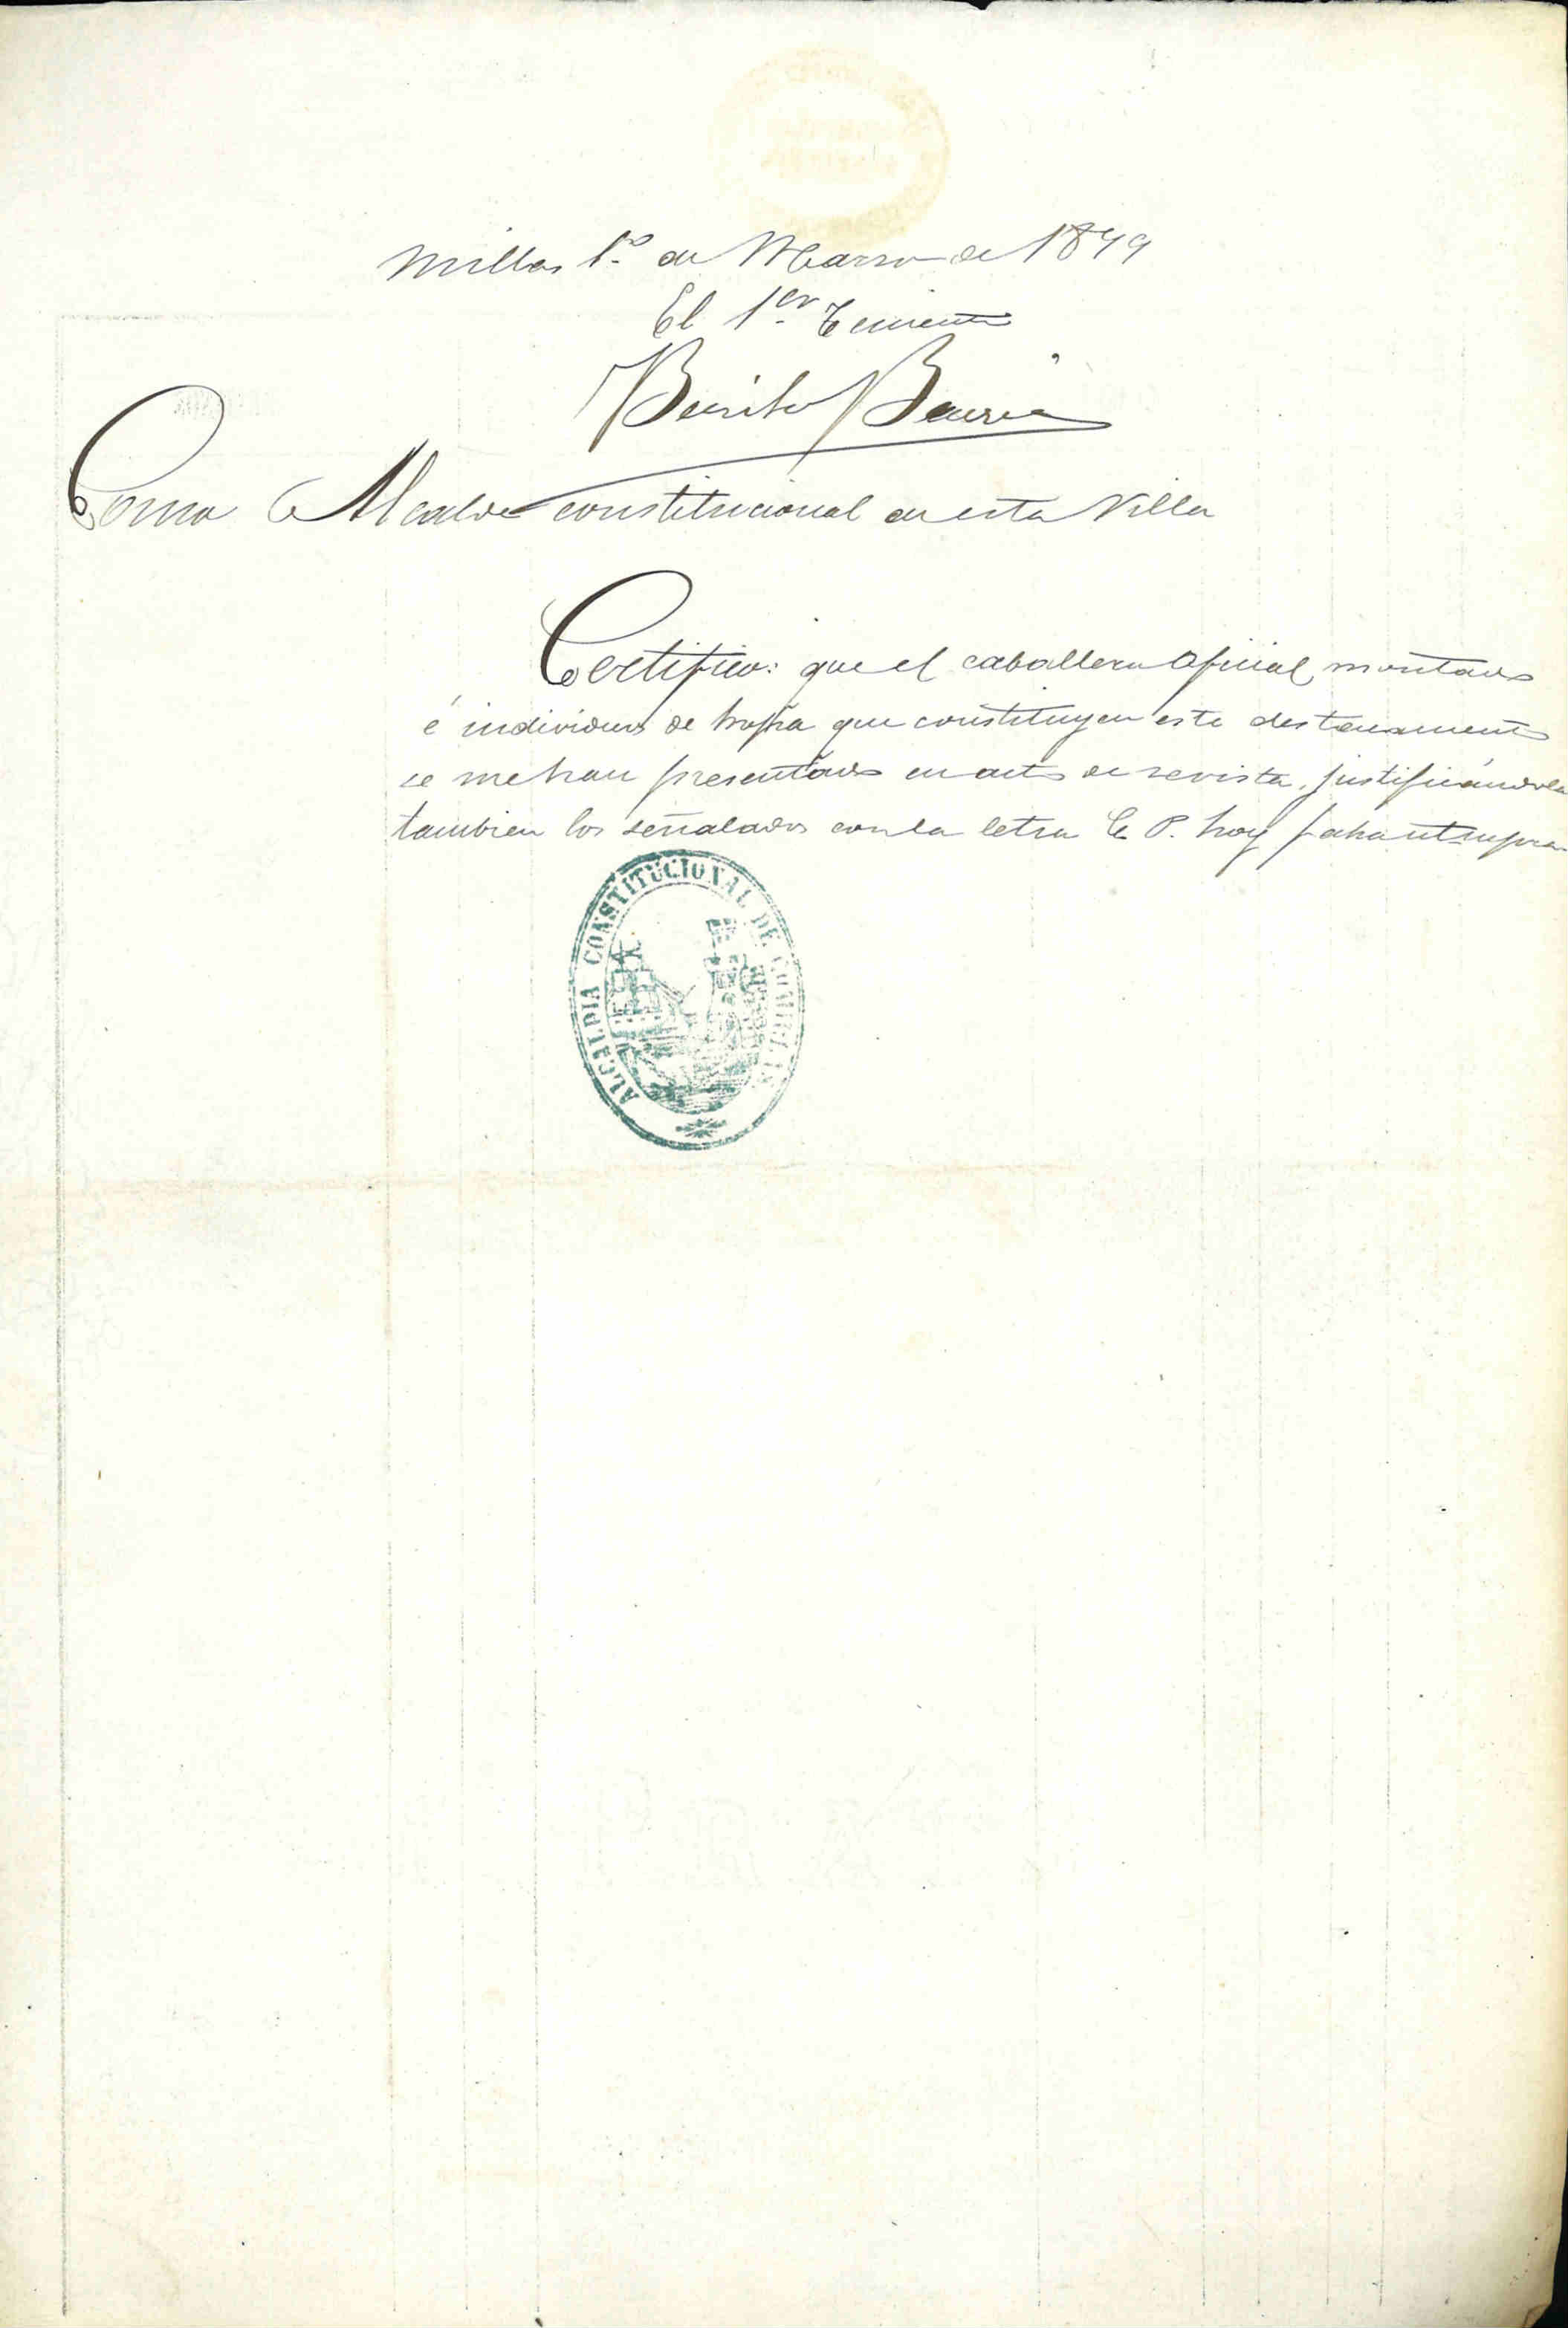 Millas 1.º de Marzo de 1899
El 1.er Teniente
Benito
Como Alcalde constitucional de esta Villa
Certifico: que el caballero Oficial, montado
é individuos de tropa que constituyen este destacamento
se me han presentado en acto de revista, justificándola
tambien los señalados con la letra C. P. hoy fecha ut supra
ALCALDIA CONSTITUCIONAL DE